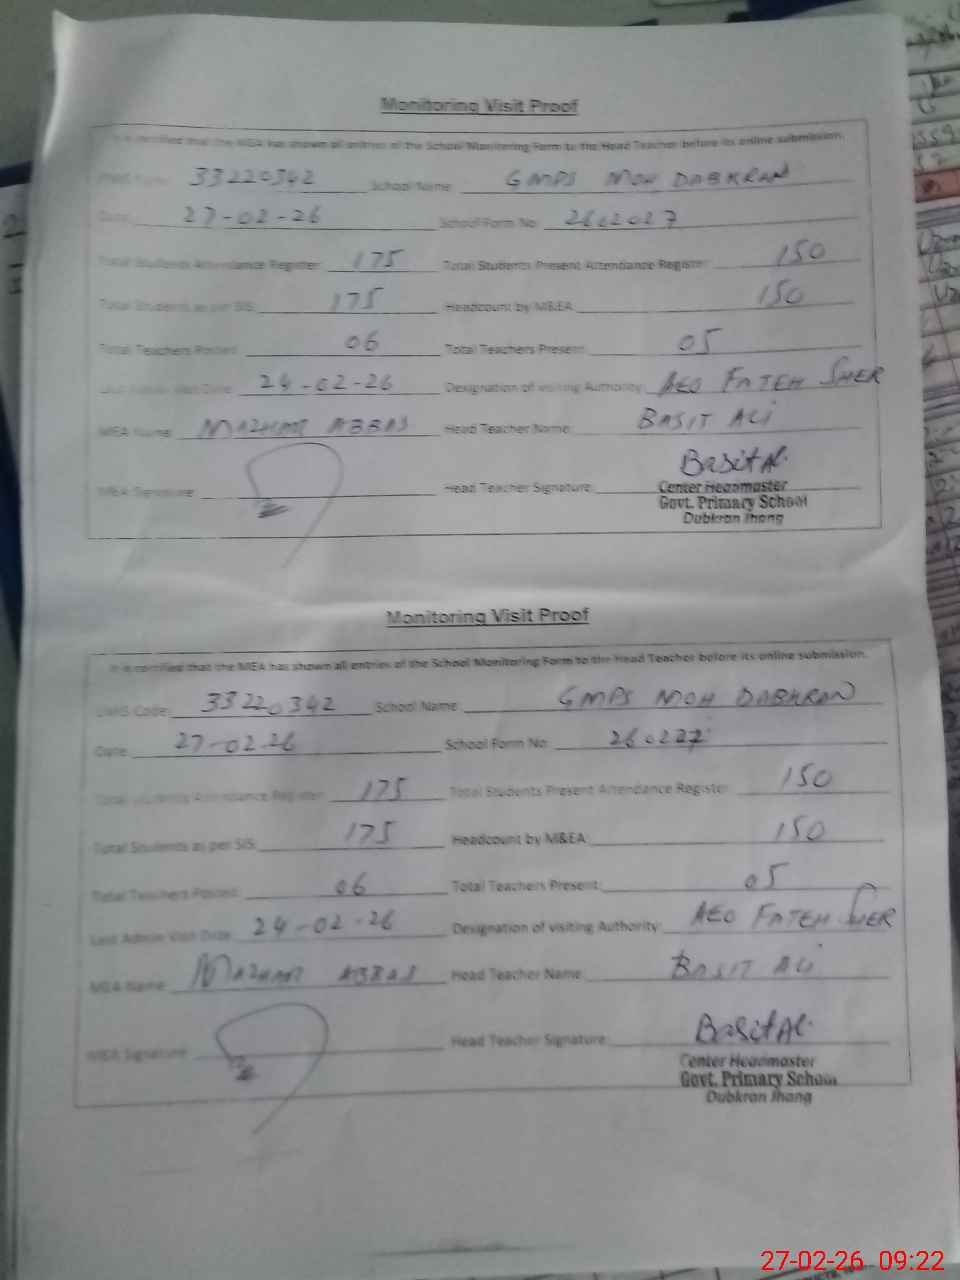 Monitoring Visit Proof
It is certified that the MEA has shown all entries of the School Monitoring Form to the Head Teacher before its online submission.
33220342 School Name: GMPS MOH DABKRAN
Date: 27-02-26 School Form No: 2602027
Total Students Attendance Register: 175 Total Students Present Attendance Register: 150
Total Students as per SIS: 175 Headcount by M&EA: 150
Total Teachers Posted: 06 Total Teachers Present: 05
Last Admin Visit Date: 24-02-26 Designation of visiting Authority: AEO FATEH SHER
MEA Name: MAZHAR ABBAS Head Teacher Name: BASIT ALI
MEA Signature: Head Teacher Signature: Basit Al
Center Headmaster
Govt. Primary School
Dubkran Jhang
Monitoring Visit Proof
It is certified that the MEA has shown all entries of the School Monitoring Form to the Head Teacher before its online submission.
Code: 33220342 School Name: GMPS MOH DABKRAN
Date: 27-02-26 School Form No: 260227
Total Students Attendance Register: 175 Total Students Present Attendance Register: 150
Total Students as per SIS: 175 Headcount by M&EA: 150
Total Teachers Posted: 06 Total Teachers Present: 05
Last Admin Visit Date: 24-02-26 Designation of visiting Authority: AEO FATEH SHER
MEA Name: MAZHAR ABBAS Head Teacher Name: BASIT ALI
MEA Signature: Head Teacher Signature: Basit Al
Center Headmaster
Govt. Primary School
Dubkran Jhang
27-02-26 09:22